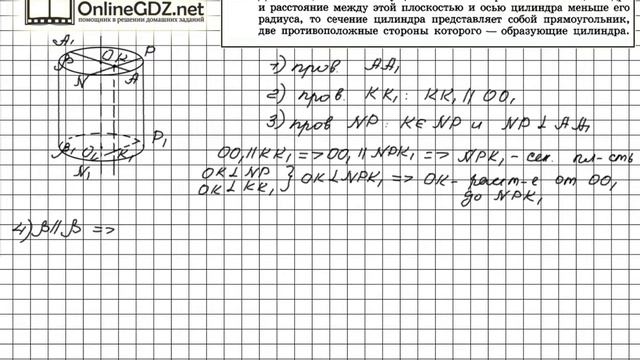 OnlineGDZ.net
помощник в решении домашних заданий
и расстояние между этой плоскостью и осью цилиндра меньше его
радиуса, то сечение цилиндра представляет собой прямоугольник,
две противоположные стороны которого — образующие цилиндра.
A₁
β
O
K
P
N
A
β₁
O₁
K₁
P₁
N₁
1) пров. AA₁
2) пров. KK₁ : KK₁ || OO₁
3) пров NP : K∈NP и NP ⊥ AA₁
OO₁ || KK₁ => OO₁ || NPK₁ => NPK₁ - сек. пл-сть
OK ⊥ NP
OK ⊥ KK₁ } OK ⊥ NPK₁ => OK - расст-е от OO₁
до NPK₁
4) β || β =>